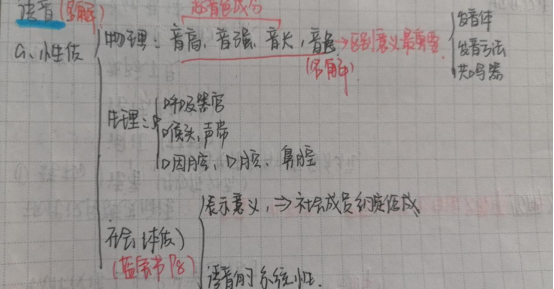 语音(名解)
超音段成分
a、小性质
物理:音高、音强、音长、音色→区别意义最重要
(名解)
发音体
发音方法
共鸣器
生理:
呼吸器官
喉头、声带
口因腔、口腔、鼻腔
社会(本质)
(蓝宝书P8)
表示意义,⇒社会成员约定俗成
语音的系统性.